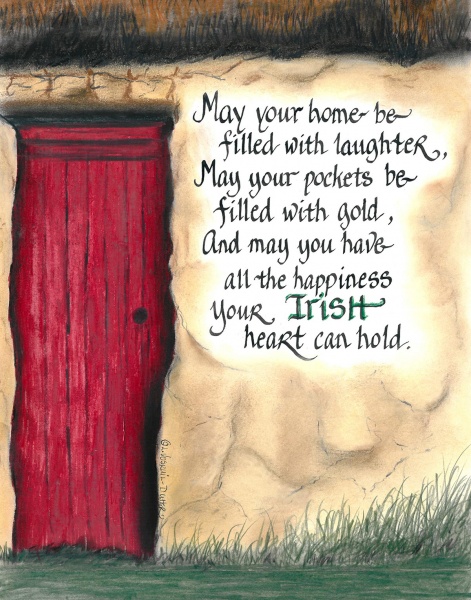 May your home be
filled with laughter,
May your pockets be
filled with gold,
And may you have
all the happiness
Your Irish
heart can hold.